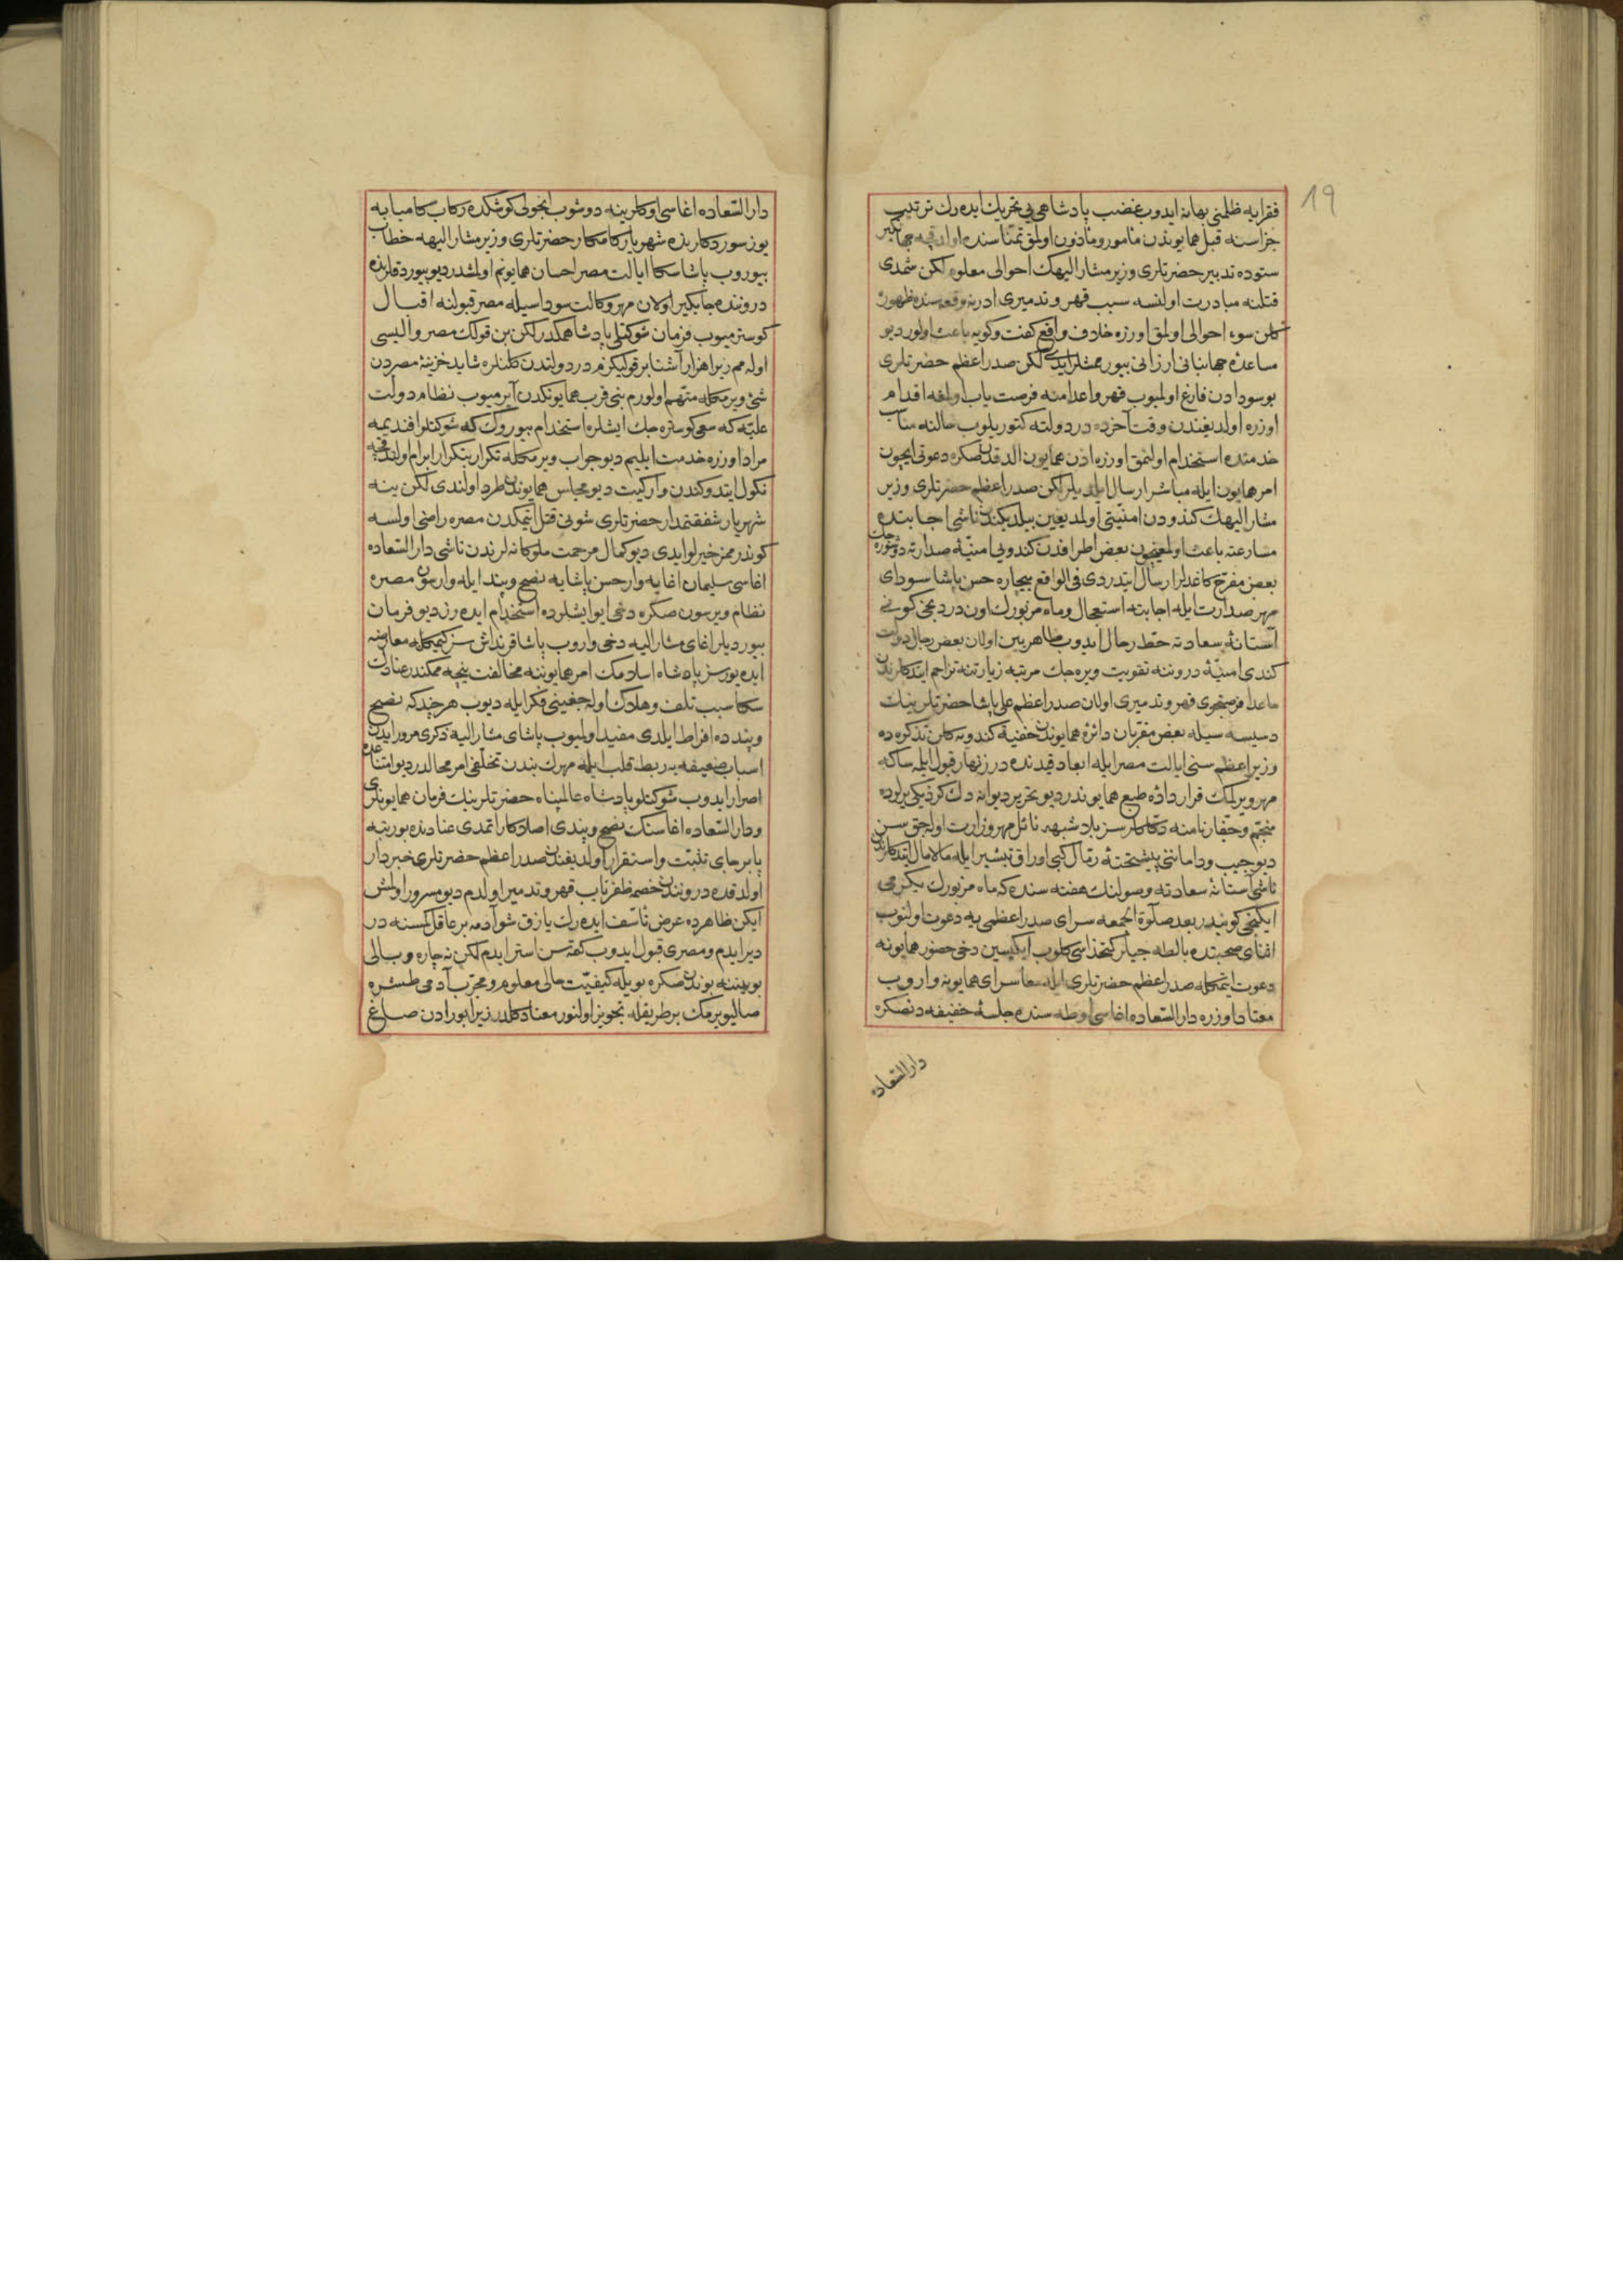 19
فقرایه ظلمنی بهانه ایدوب غضب پادشاهی یی تحریك ایده رك ترتیب
جزاسنه قبل همایوندن مأمور ومأذون اولمق تمناسنده اولدقجه جهانگیر
ستوده تدبیر حضرتلری وزیر مشار الیهك احوالی معلوم لكن شمدی
قتلنه مبادرت اولنسه سبب قهر وتدمیری ادرنه وقعه سنده ظهوره
كلن سوء احوالی اولمق اوزره خلاف واقع كفت وكویه باعث اولور دیو
مساعده جهانبانی ارزانی بیورممشلر ایدی لكن صدر اعظم حضرتلری
بو سودادن فارغ اولمیوب قهر واعدامنه فرصت یاب اولمغه اقدام
اوزره اولدیغندن وقت آخرده در دولته كتوریلوب حالنه مناسب
خدمتده استخدام اولنمق اوزره اذن همایون الدقدن صكره دعوتی ایچون
امر همایون ایله مباشر ارسال ایلدیلر لكن صدر اعظم حضرتلری وزیر
مشار الیهك كندودن امنیتی اولمدیغین بیلدیكندن ناشی اجابتده
مسارعته باعث اولمغیچون بعض اطرافدن كندویی امنیه صدارته دوشوره جك
بعض مفرح كاغدلر ارسال ایتدردی فی الواقع بیچاره حسن پاشا سودای
مهر صدارت ایله اجابته استعجال وماه مزبورك اون دردنجی كونی
آستانه سعادته حط رحال ایدوب ظاهر بین اولان بعض رجال دولت
كندی امنیه دروننه تقویت ویره جك مرتبه زیارتنه تزاحم ایتدكلرندن
ماعدا فرصتجوی قهر وتدمیری اولان صدر اعظم علی پاشا حضرتلرینك
دسیسه سیله بعض مقربان دائره همایوندن خفیة كندویه كلن تذكره ده
وزیر اعظم سنی ایالت مصر ایله ابعاد قیدنده در زنهار قبول ایلمه ساكه
مهر ویرلمك قرار داده طبع همایوندر دیو تحریر دیوانه دك كزدیكی یرلرده
منجم وحفارنامنه دكلكلر سز بلا شبهه نائل مهر وزارت اولجق سن
دیو جیب ودامانی پیشتخته رمال كبی اوراق تبشیر ایله مالامال ایتدكلرندن
ناشی آستانه سعادته وصولنك هفته سنده كه ماه مزبورك یكرمی
ایكنجی كونیدر بعد صلوة الجمعه سرای صدر اعظمی یه دعوت اولنوب
اثنای صحبتده بالطه جیلر كتخداسی كلوب ایكیسین دخی حضور همایونه
دعوت ایتمكله صدر اعظم حضرتلری ایله معا سرای همایونه واروب
معتاد اوزره دار السعاده اغاسی اوطه سنده جلسه خفیفه دنصكره
دار السعاده
دار السعاده اغاسی اوكلرینه دوشوب اینجولی كوشكده ركاب كامیابه
یوز سوردكلرنده شهریار كامكار حضرتلری وزیر مشار الیهه خطاب
بیوروب پاشا سكا ایالت مصر احسان همایونم اولمشدر دیو بیوردقلرنده
دروننده جایكیر اولان مهر وكالت سوداسیله مصر قبولنه اقبال
كوسترمیوب فرمان شوكتلی پادشاهمكدر لكن بن قولك مصر والیسی
اوله مم زیرا هزار آشنا بر قولیكزم در دولتدن كلنلره شاید خزینه مصردن
شی ویرمكله متهم اولورم بنی قرب همایونكدن آیرمیوب نظام دولت
علیه كه سعی كوستره جك ایشلره استخدام بیورك كه شوكتلو افندیمه
مراد اوزره خدمت ایلیم دیو جواب ویرمكله تكرار بتكرار ابرام اولندقجه
نكول ایتدوكندن وار كیت دیو مجلس همایوندن طرد اولندی لكن ینه
شهریار شفقتمدار حضرتلری شونی قتل ایتمكدن مصره راضی اولسه
كوندرممز خیرلو ایدی دیو كمال مرحمت ملوكانه لرندن ناشی دار السعاده
اغاسی سلیمان اغایه وار حسن پاشایه نصح وپند ایله وارسون مصره
نظام ویرسون صكره دخی ایو ایشلرده استخدام ایده رز دیو فرمان
بیوردیلر اغای مشار الیه دخی واروب پاشا قرنداش سز كیمكله معارضه
ایده یورسز پادشاه اسلامك امر همایوننه مخالفت نیجه ممكندر عنادك
سكا سبب تلف وهلاك اوله جغینی فكر ایله دیوب هر چند كه نصح
وپنده افراط ایلدی مفید اولمیوب پاشای مشار الیه ذكری مرور ایدن
اسباب ضعیفه یه ربط قلب ایله مهرك بندن تخلفی امر محالدر دیو امتناعده
اصرار ایدوب شوكتلو پادشاه عالمپناه حضرتلرینك فرمان همایونلری
ودار السعاده اغاسنك نصح وپندی اصلا كار ایتمدی عنادنده بو رتبه
پا بر جای تثبت واستقرار اولدیغندن صدر اعظم حضرتلری خبردار
اولدقده دروندن خصمه ظفریاب قهر وتدمیر اولدم دیو مسرور اولمش
ایكن ظاهرده عرض تأسف ایده رك یازق شو آدمه بر عاقل كمسنه در
دیر ایدم ومصری قبول ایدوب كتمه سن استر ایدم لكن نه چاره وبالی
بوینینه بوندن صكره بویله كیفیت حالی معلوم ومجرب آدمی طشره
صالیویرمك بر طریقله تجویز اولنور معناد كلدر زیرا بورادن صاغ